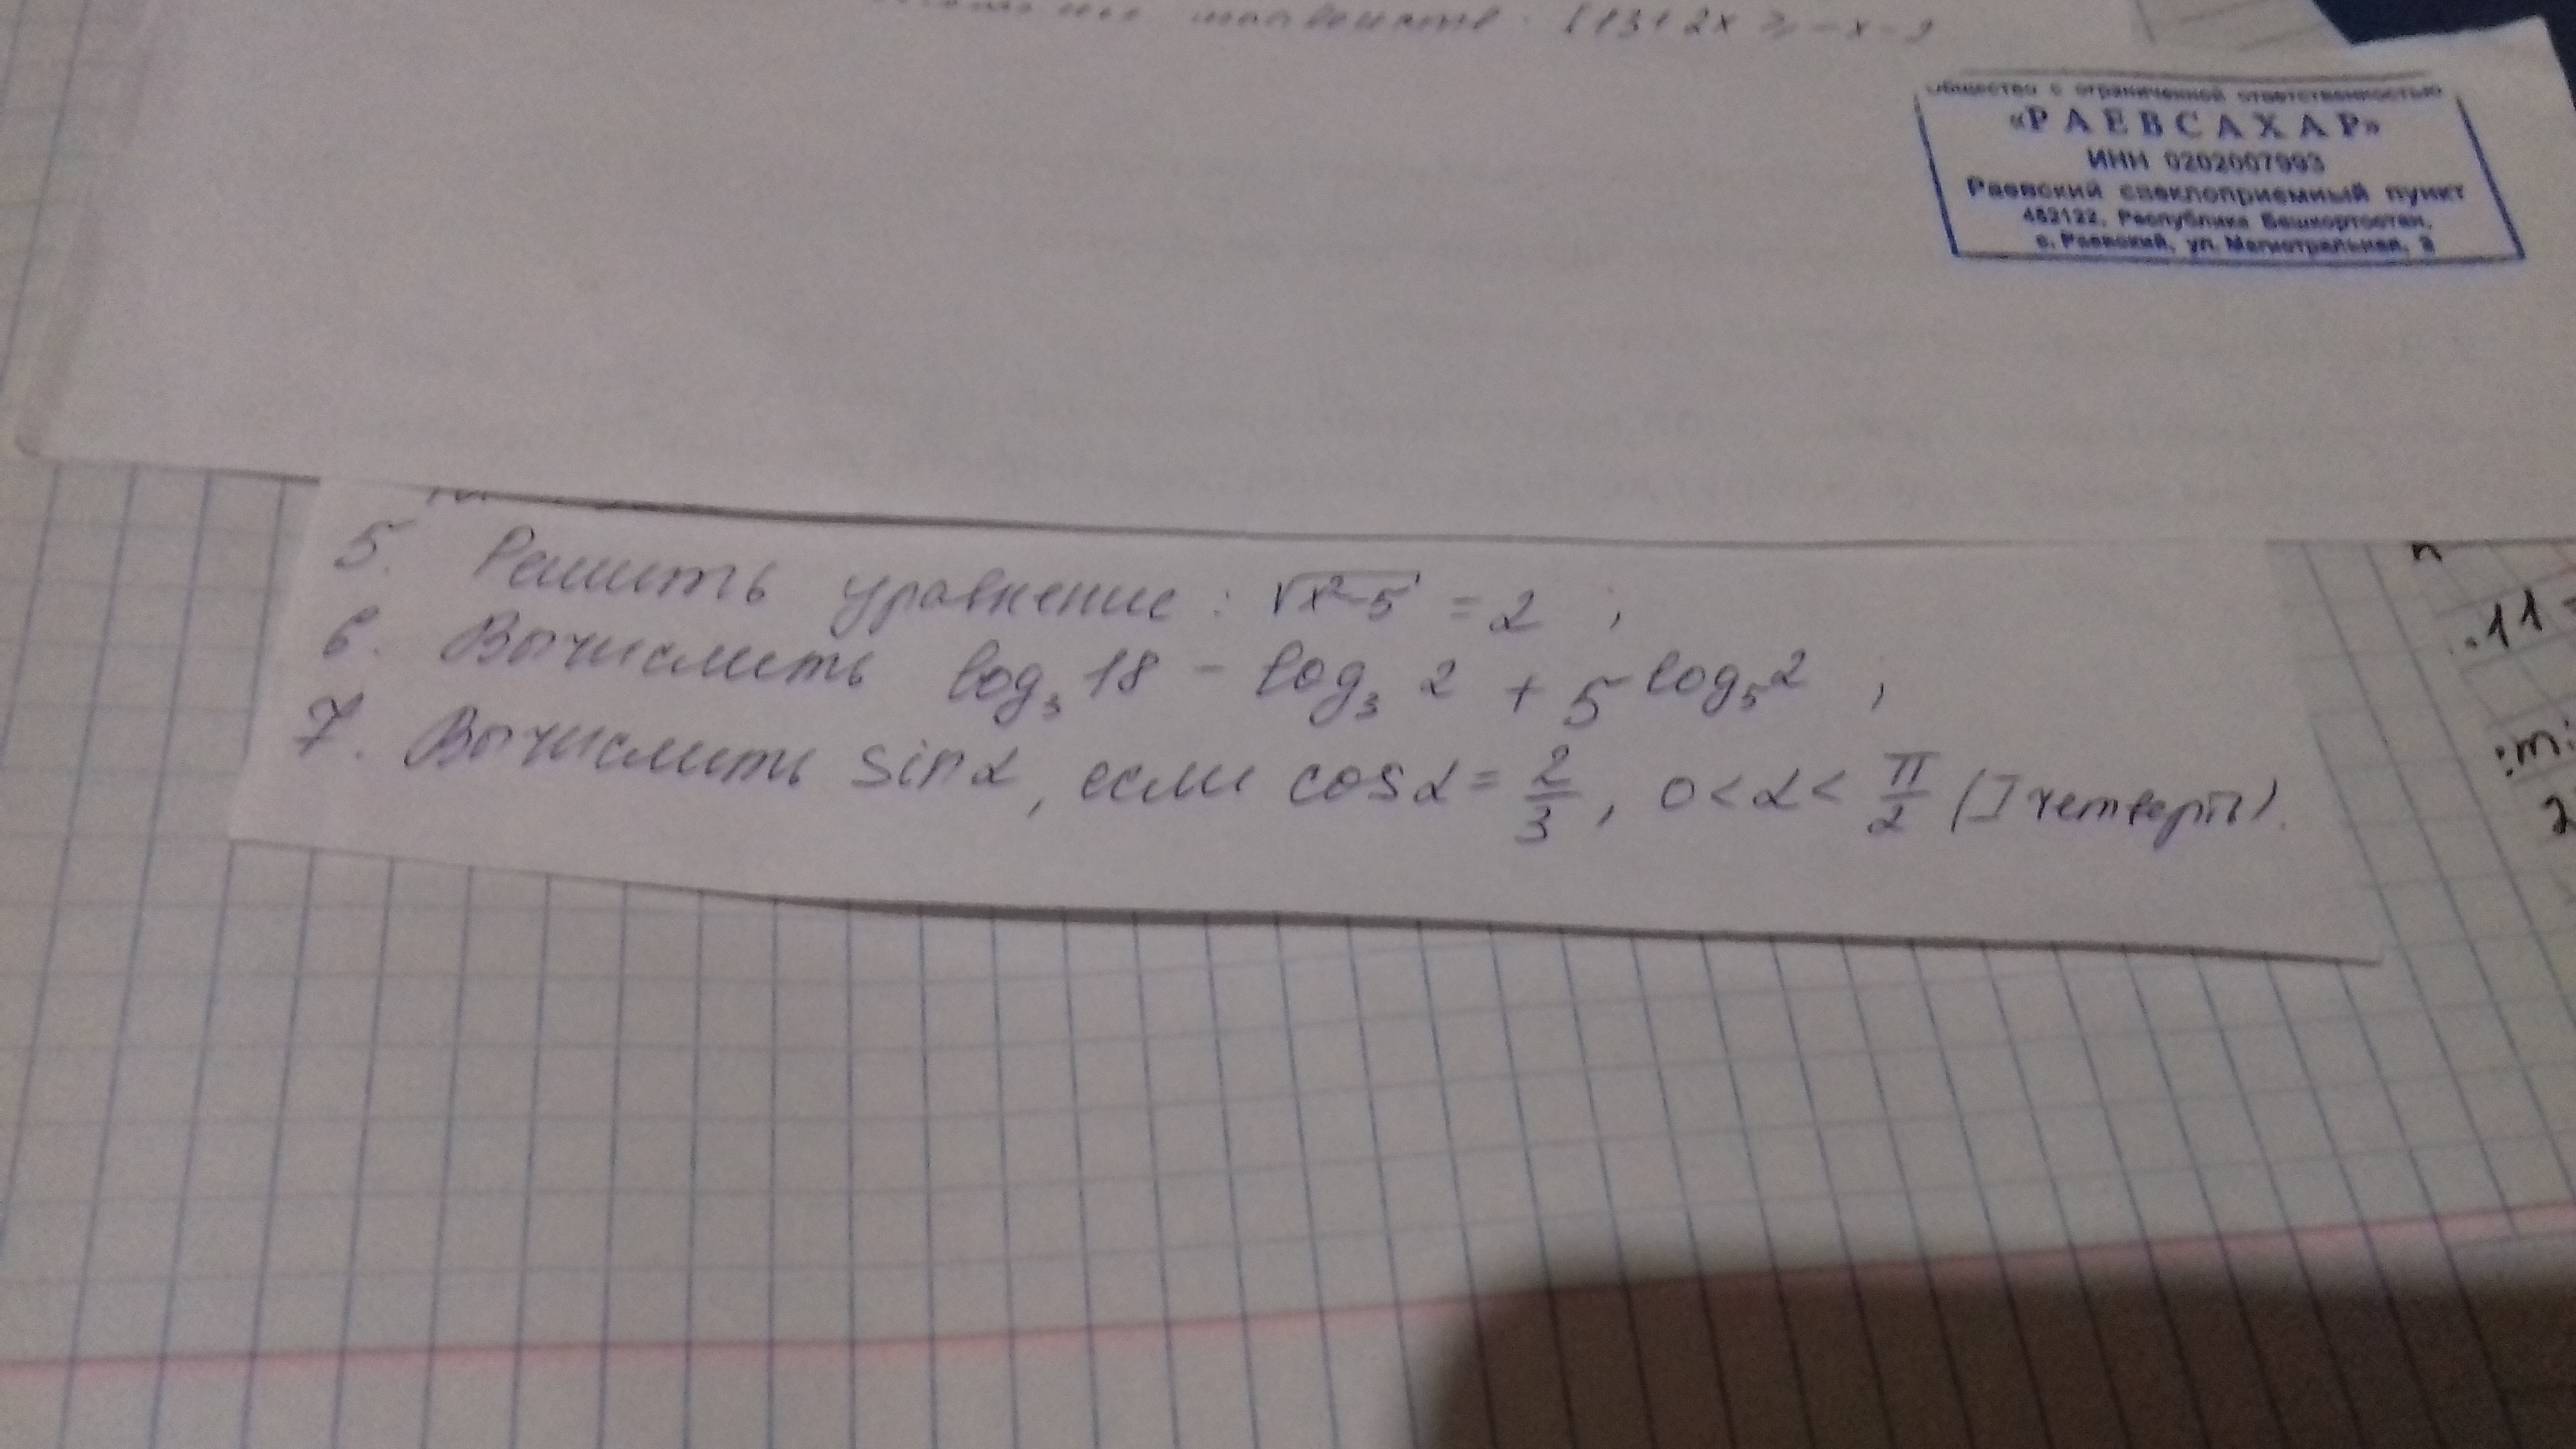 { 13 + 2x ≥ -x - 9
Общество с ограниченной ответственностью
«РАЕВСАХАР»
ИНН 0202007993
Раевский свеклоприемный пункт
452122, Республика Башкортостан,
с. Раевский, ул. Магистральная, 2
5. Решить уравнение : √x²-5 = 2 ;
6. Вычислить log₃ 18 - log₃ 2 + 5^log₅2 ;
7. Вычислить sin α, если cos α = 2/3, 0 < α < π/2 (I четверть).
.11
:m
2